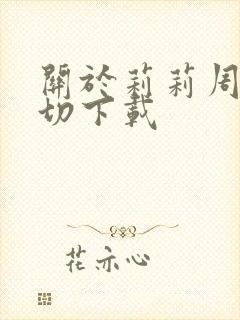 關於莉莉周
切下載
花亦心